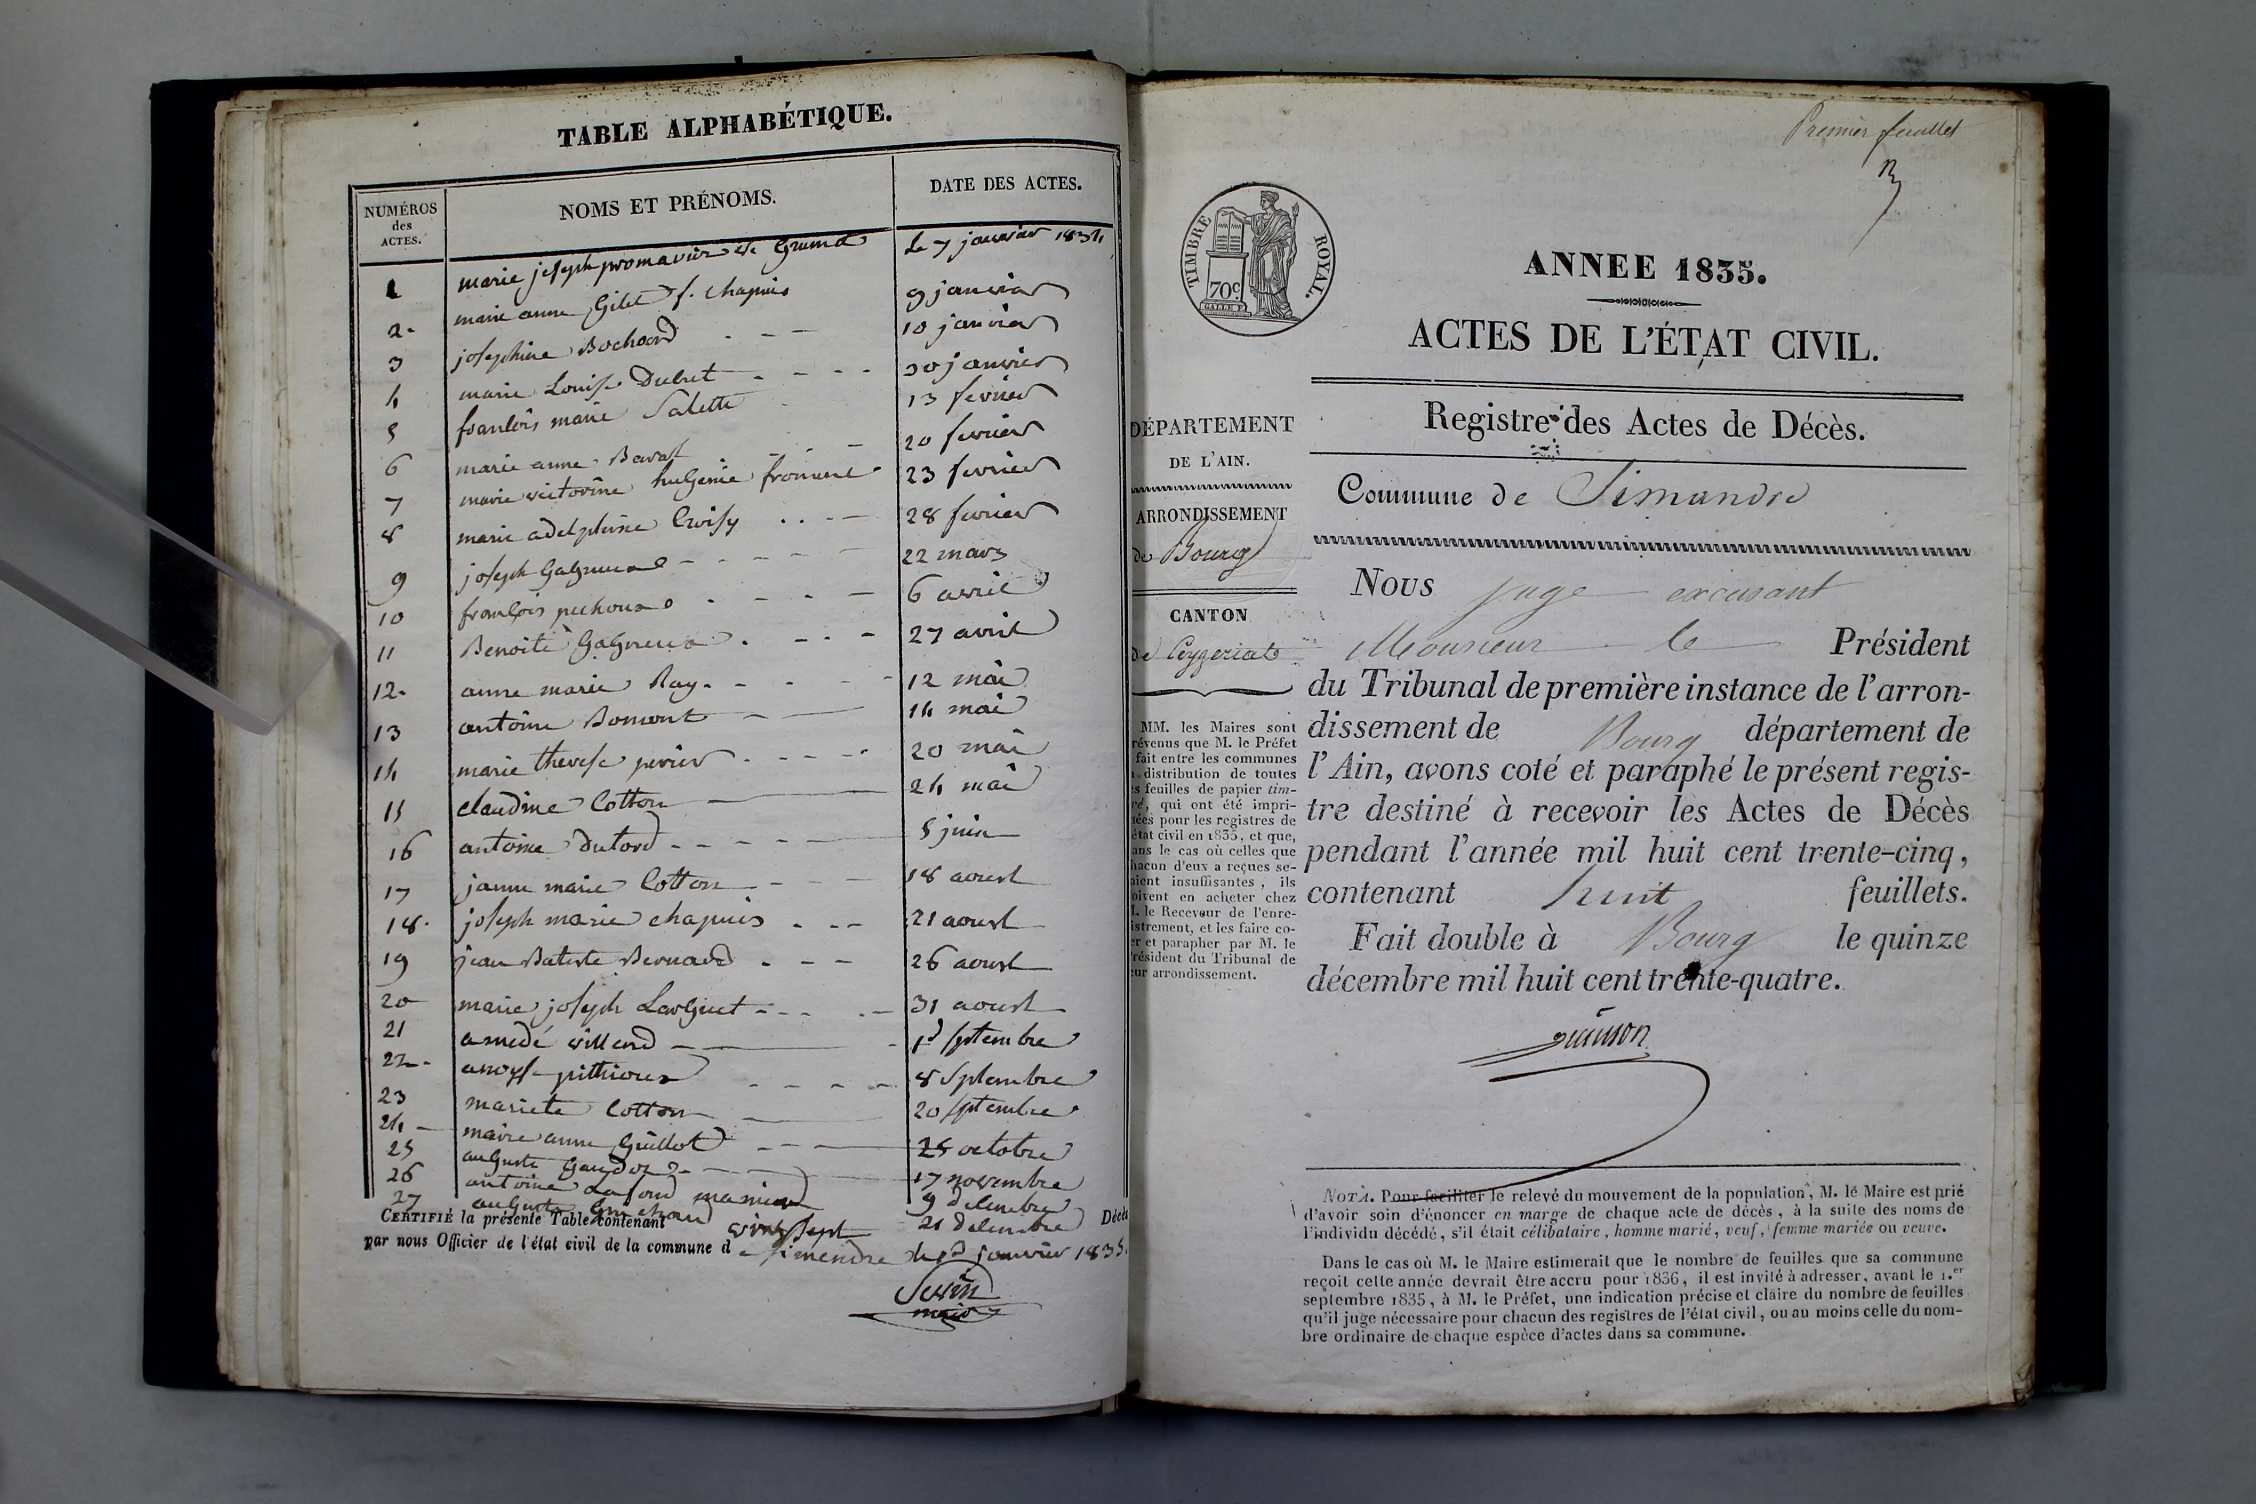 TABLE ALPHABÉTIQUE.
NUMÉROS des ACTES. NOMS ET PRÉNOMS. DATE DES ACTES.
1 marie joseph promavier de Le 7 janvier 1834
2. marie anne Gilet f. Chapuis 9 janvier
3 josephine Bochard 10 janvier
4 marie Louise Dubret 30 janvier
5 franlois marie Salette 13 fevrier
6 marie anne Bavat 20 fevrier
7 marie victorine hulgenie froment 23 fevrier
8 marie adelphine Croisy 28 fevrier
9 joseph Gagneux 22 mars
10 franlois puchoux 6 avril
11 Benoite Gagneux 27 avril
12. anne marie Ray 12 mai
13 antoine Bomont 14 mai
14 marie therese perier 20 mai
15 claudine Cotton 24 mai
16 antoine Dutord 5 juin
17 jeanne marie Cotton 18 aoust
18. joseph marie chapuis 21 aoust
19 jean Batiste Bernard 26 aoust
20 marie joseph Larguet 31 aoust
21 amedé willard 1er septembre
22. pithioux 8 septembre
23 mariete Cotton 20 septembre
24 marie anne Guillot 25 octobre
25 auguste Gaudoz 17 novembre
26 antoine Lafond 9 delembre
27 auguste 21 delembre
CERTIFIÉ la présente Table contenant vingt sept Décès
par nous Officier de l'état civil de la commune d Simendre le 1er janvier 1835.
Serin
maire
Premier feuillet
TIMBRE ROYAL.
70c
ANNEE 1835.
ACTES DE L'ÉTAT CIVIL.
Registre des Actes de Décès.
Commune de Simandre
DÉPARTEMENT
DE L'AIN.
ARRONDISSEMENT
de Bourg
CANTON
de Ceyzeriat
MM. les Maires sont
révenus que M. le Préfet
fait entre les communes
distribution de toutes
feuilles de papier tim-
ré, qui ont été impri-
mées pour les registres de
état civil en 1835, et que,
ans le cas où celles que
hacun d'eux a reçues se-
aient insuffisantes, ils
oivent en acheter chez
M. le Receveur de l'enre-
istrement, et les faire co-
er et parapher par M. le
résident du Tribunal de
eur arrondissement.
Nous juge excusant
Monsieur le Président
du Tribunal de première instance de l'arron-
dissement de Bourg département de
l'Ain, avons coté et paraphé le présent regis-
tre destiné à recevoir les Actes de Décès
pendant l'année mil huit cent trente-cinq,
contenant huit feuillets.
Fait double à Bourg le quinze
décembre mil huit cent trente-quatre.
NOTA. Pour faciliter le relevé du mouvement de la population, M. le Maire est prié
d'avoir soin d'énoncer en marge de chaque acte de décès, à la suite des noms de
l'individu décédé, s'il était célibataire, homme marié, veuf, femme mariée ou veuve.
Dans le cas où M. le Maire estimerait que le nombre de feuilles que sa commune
reçoit cette année devrait être accru pour 1836, il est invité à adresser, avant le 1.er
septembre 1835, à M. le Préfet, une indication précise et claire du nombre de feuilles
qu'il juge nécessaire pour chacun des registres de l'état civil, ou au moins celle du nom-
bre ordinaire de chaque espèce d'actes dans sa commune.